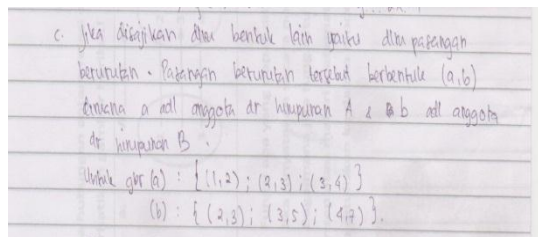 c. Jika disajikan dlm bentuk lain yaitu dlm pasangan
berurutan. Pasangan berurutan tersebut berbentuk (a,b)
dimana a adl anggota dr himpunan A & b adl anggota
dr himpunan B.
Untuk gbr (a) : { (1,2) ; (2,3) ; (3,4) }
(b) : { (2,3) ; (3,5) ; (4,7) }.